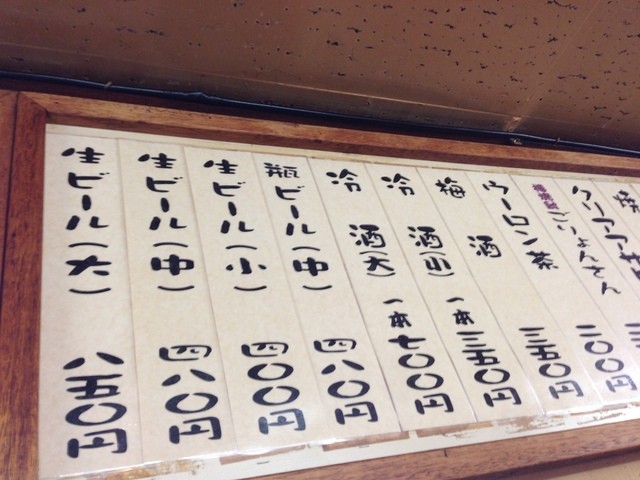 焼
クリアアサ
ごりょんさん 三
ウーロン茶 二〇〇円
梅酒 三五〇円
冷酒(小) 一本三五〇円
冷酒(大) 一本七〇〇円
瓶ビール(中) 四八〇円
生ビール(小) 四〇〇円
生ビール(中) 四八〇円
生ビール(大) 八五〇円